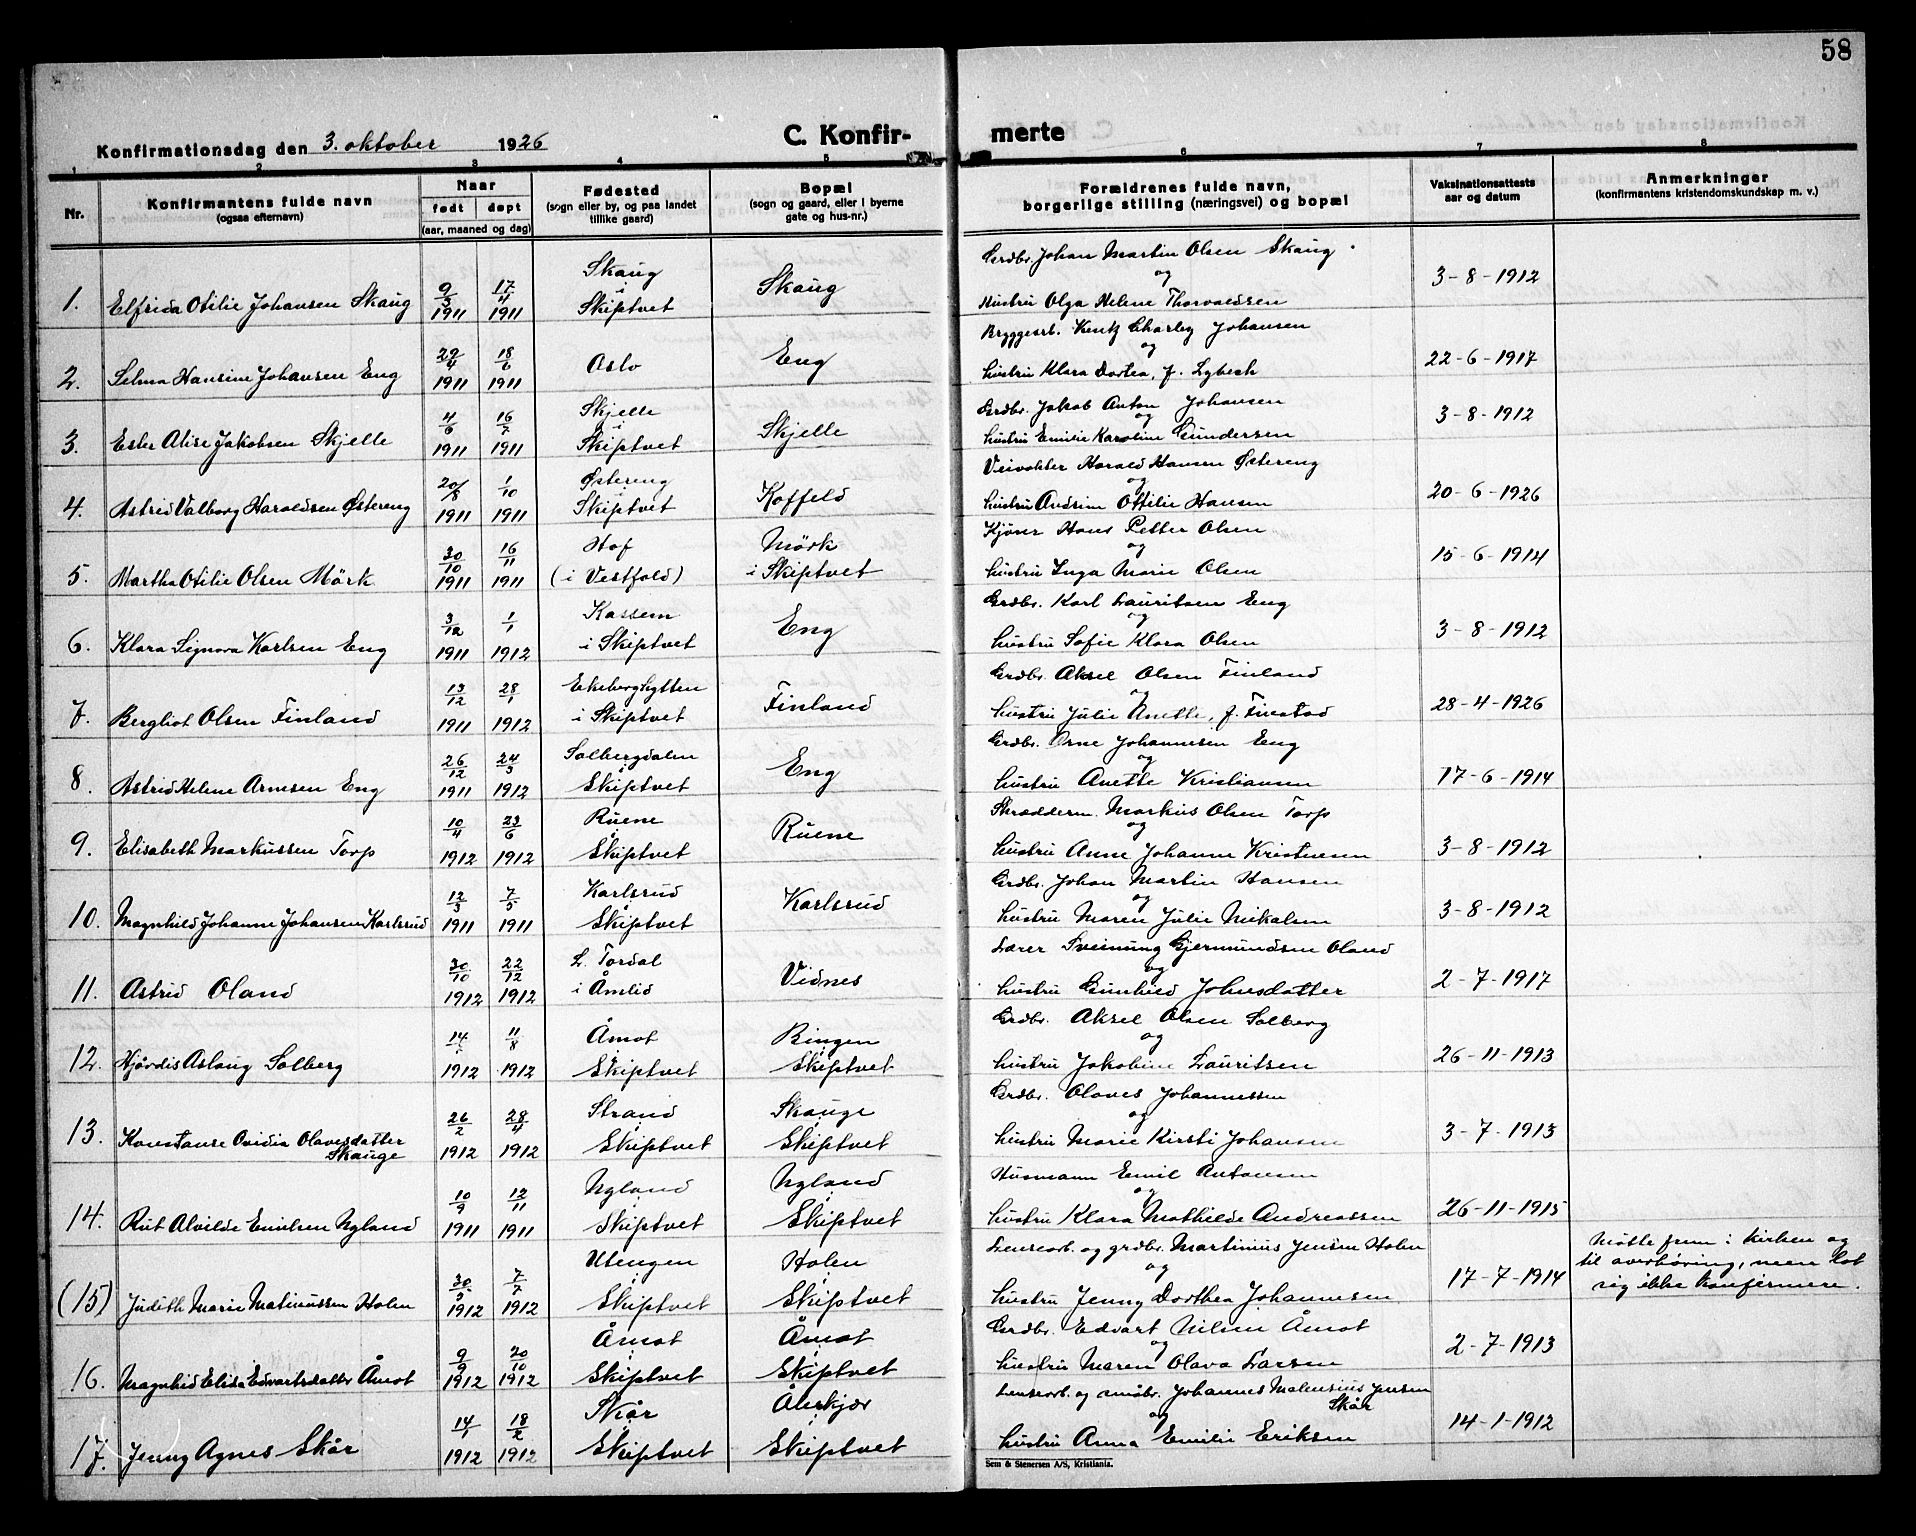 58
Konfirmationsdag den 3. oktober 1926
C. Konfir-
merte
1 2 3 4 5 6 7 8
Nr.
Konfirmantens fulde navn
(ogsaa efternavn)
Naar
født døpt
(aar, maaned og dag)
Fødested
(sogn eller by, og paa landet
tillike gaard)
Bopæl
(sogn og gaard, eller i byerne
gate og hus-nr.)
Forældrenes fulde navn,
borgerlige stilling (næringsvei) og bopæl
Vaksinationsattests
aar og datum
Anmerkninger
(konfirmantens kristendomskundskap m. v.)
1. Elfrida Otilie Johansen Skaug 9/3 1911 17/4 1911 Skaug i Skiptvet Skaug
Grdbr. Johan Martin Olsen Skaug
og
Hustru Olga Helene Thorvaldsen
3-8-1912
2. Selma Hansine Johansen Eng 29/4 1911 18/6 1911 Oslo Eng
Bryggearb. Kentz Charley Johansen
og
hustru Klara Dortea, f. Lybech
22-6-1917
3. Ester Alise Jakobsen Skjelle 4/6 1911 16/7 1911 Skjelle i Skiptvet Skjelle
Grdbr. Jakob Anton Johansen
og
hustru Emilie Karoline Gundersen
3-8-1912
4. Astrid Valborg Haraldsen Østereng 20/8 1911 1/10 1911 Østereng i Skiptvet Koffeld
Veivokter Harald Hansen Østereng
og
hustru Andrine Otilie Hansen
20-6-1926
5. Martha Otilie Olsen Mörk 30/10 1911 16/11 1911 Hof (i Vestfold) Mörk i Skiptvet
Kjører Hans Petter Olsen
og
hustru Inga Marie Olsen
15-6-1914
6. Klara Signora Karlsen Eng 3/12 1911 1/1 1912 Kassem i Skiptvet Eng
Grdbr. Karl Lauritsen Eng
og
hustru Sofie Klara Olsen
3-8-1912
7. Bergliot Olsen Finland 13/12 1911 28/1 1912 Ekeberghytten i Skiptvet Finland
Grdbr. Aksel Olsen Finland
og
hustru Julie Anette, f. Finstad
28-4-1926
8. Astrid Helene Arnesen Eng 26/12 1911 24/3 1912 Solbergdalen i Skiptvet Eng
Grdbr. Arne Johannesen Eng
og
hustru Anette Kristiansen
17-6-1914
9. Elisabeth Markussen Torp 10/4 1912 23/6 1912 Ruene i Skiptvet Ruene
Skræddern. Markus Olsen Torp
og
hustru Anne Johanne Kristensen
3-8-1912
10. Magnhild Johanne Johansen Karlsrud 12/3 1911 7/5 1911 Karlsrud i Skiptvet Karlsrud
Grdbr. Johan Martin Hansen
og
hustru Maren Julie Mikalsen
3-8-1912
11. Astrid Oland 30/10 1912 22/12 1912 L. Tordal i Åmlid Vidnes
Lærer Sveinung Gjermundsen Oland
og
hustru Gunhild Johnsdatter
2-7-1917
12. Hjørdis Aslaug Solberg 14/ 1912 11/8 1912 Åmot i Skiptvet Bingen Skiptvet
Grdbr. Aksel Olsen Solberg
og
hustru Jakobine Lauritsen
26-11-1913
13. Konstanse Ovidia Olavesdatter Skauge 26/2 1912 28/4 1912 Strand i Skiptvet Skauge Skiptvet
Grdbr. Olaves Johannessen
og
hustru Marie Kirsti Johansen
3-7-1913
14. Rut Alvilde Emilsen Nyland 10/9 1911 12/11 1911 Nyland i Skiptvet Nyland i Skiptvet
Husmann Emil Antonsen
og
hustru Klara Mathilde Andreassen
26-11-1915
(15) Judith Marie Matinussen Holen 30/3 1912 7/7 1912 Utengen i Skiptvet Holen i Skiptvet
Lenseorb. og grdbr. Martinius Jensen Holen
og
hustru Jenny Dorthea Johannesen
17-7-1914
Møtte frem i kirken og
til overhøring, men lot
sig ikke konfirmere.
16. Magnhild Elida Edvartsdatter Åmot 9/9 1912 20/10 1912 Åmot i Skiptvet Åmot i Skiptvet
Grdbr. Edvart Nilsen Åmot
og
hustru Maren Olava Larsen
2-7-1913
17. Jenny Agnes Skår 14/1 1912 18/2 1912 Skår i Skiptvet Åkerkjær Skiptvet
Lensearb. og småbr. Johannes Jensen Skår
og
hustru Anna Emilie Eriksen
14-1-1912
Sem & Stenersen A/S, Kristiania.